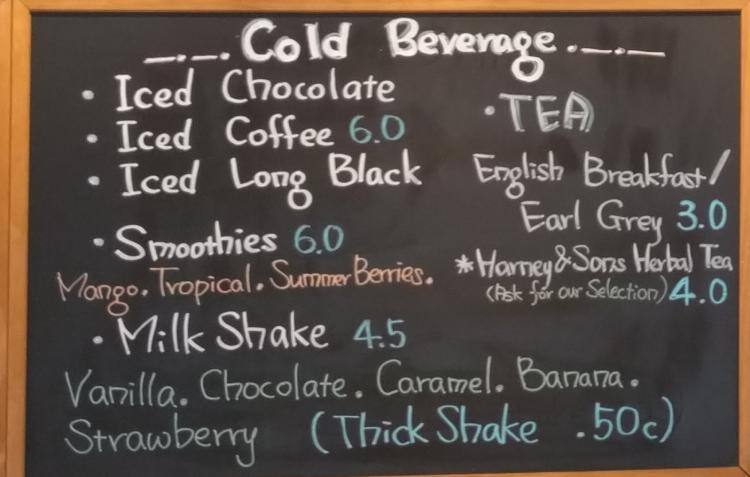 _._. Cold Beverage ._._
• Iced Chocolate
• Iced Coffee 6.0
• Iced Long Black
• Smoothies 6.0
Mango. Tropical. Summer Berries.
• Milk Shake 4.5
Vanilla. Chocolate. Caramel. Banana.
Strawberry (Thick Shake .50c)
• TEA
English Breakfast/
Earl Grey 3.0
*Harney & Sons Herbal Tea
(Ask for our Selection) 4.0